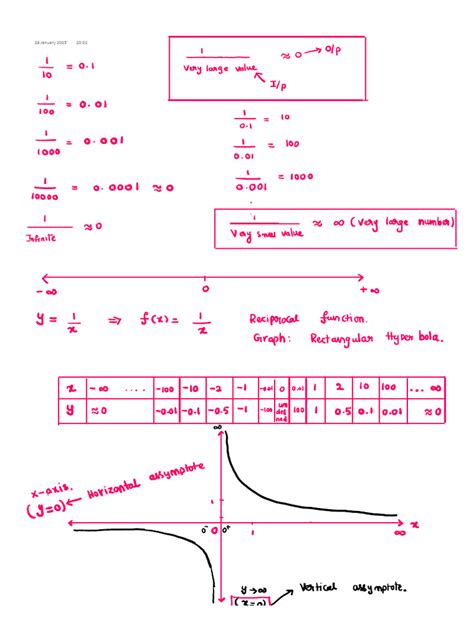 28 January 2025 20:02
1/10 = 0.1
1/100 = 0.01
1/1000 = 0.001
1/10000 = 0.0001 ≈ 0
1/Infinite ≈ 0
1/Very large value ≈ 0 → O/p
I/p
1/0.1 = 10
1/0.01 = 100
1/0.001 = 1000
1/Very small value ≈ ∞ (Very large number)
-∞ 0 +∞
y = 1/x ⇒ f(x) = 1/x Reciprocal function.
Graph: Rectangular Hyperbola.
x -∞ .... -100 -10 -2 -1 -0.01 0 0.01 1 2 10 100 ... ∞
y ≈0 -0.01 -0.1 -0.5 -1 -100 un def ined 100 1 0.5 0.1 0.01 ≈0
∞
x-axis. (y=0) ← Horizontal assymptote
1
0⁻ 0 0⁺ 1 ∞ x
y→∞ (x=0) → Vertical assymptote.